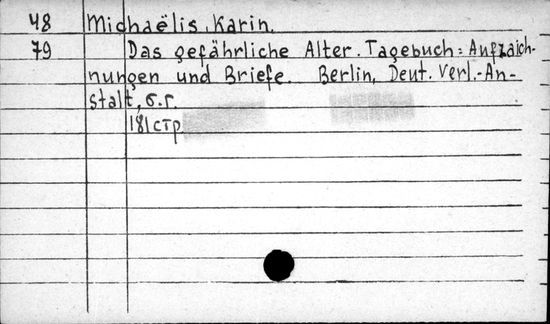 48 Michaëlis, Karin.
79 Das gefährliche Alter. Tagebuch-Aufzaich-
nungen und Briefe. Berlin, Deut. Verl.-An-
stalt, б.г.
181 стр